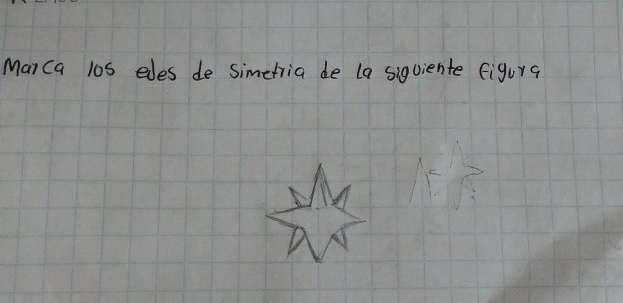 Marca los edes de simetria de la siguiente figura